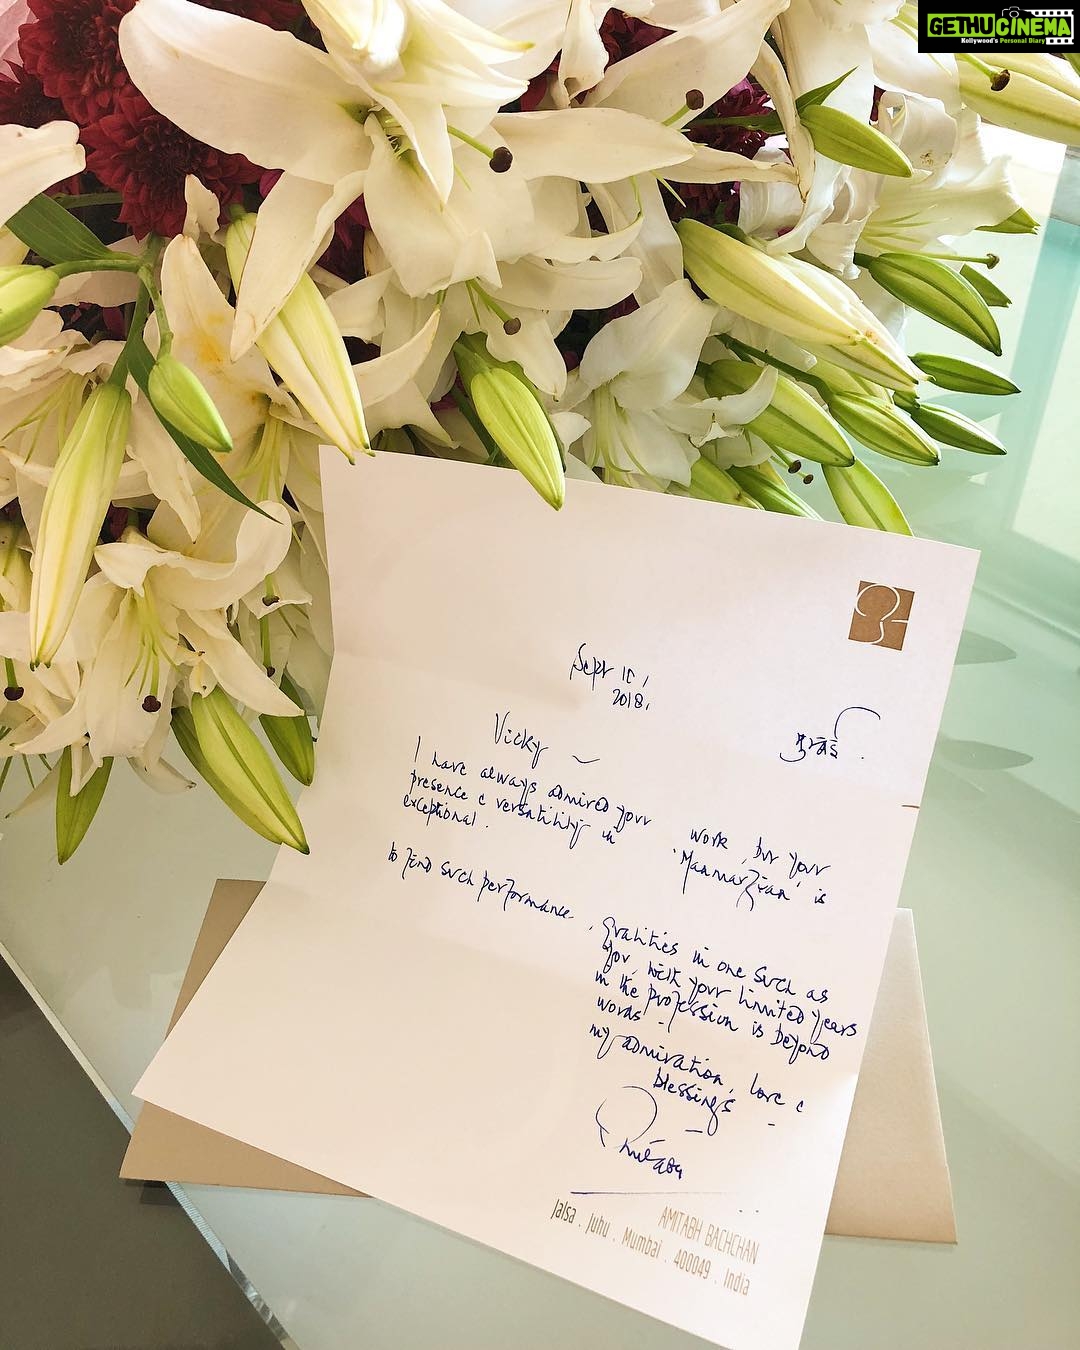 GETHU CINEMA
Kollywood's Personal Diary
Sept
2018.
मुंबई.
Vicky ~
I have always admired your work, but your
presence & versatility in 'Manmarziyan' is
exceptional.
to find such performance, qualities in one such as
you, with your limited years
in the profession is beyond
words -
my admiration, love &
blessings -
Amitabh
AMITABH BACHCHAN
Jalsa . Juhu . Mumbai . 400049 . India